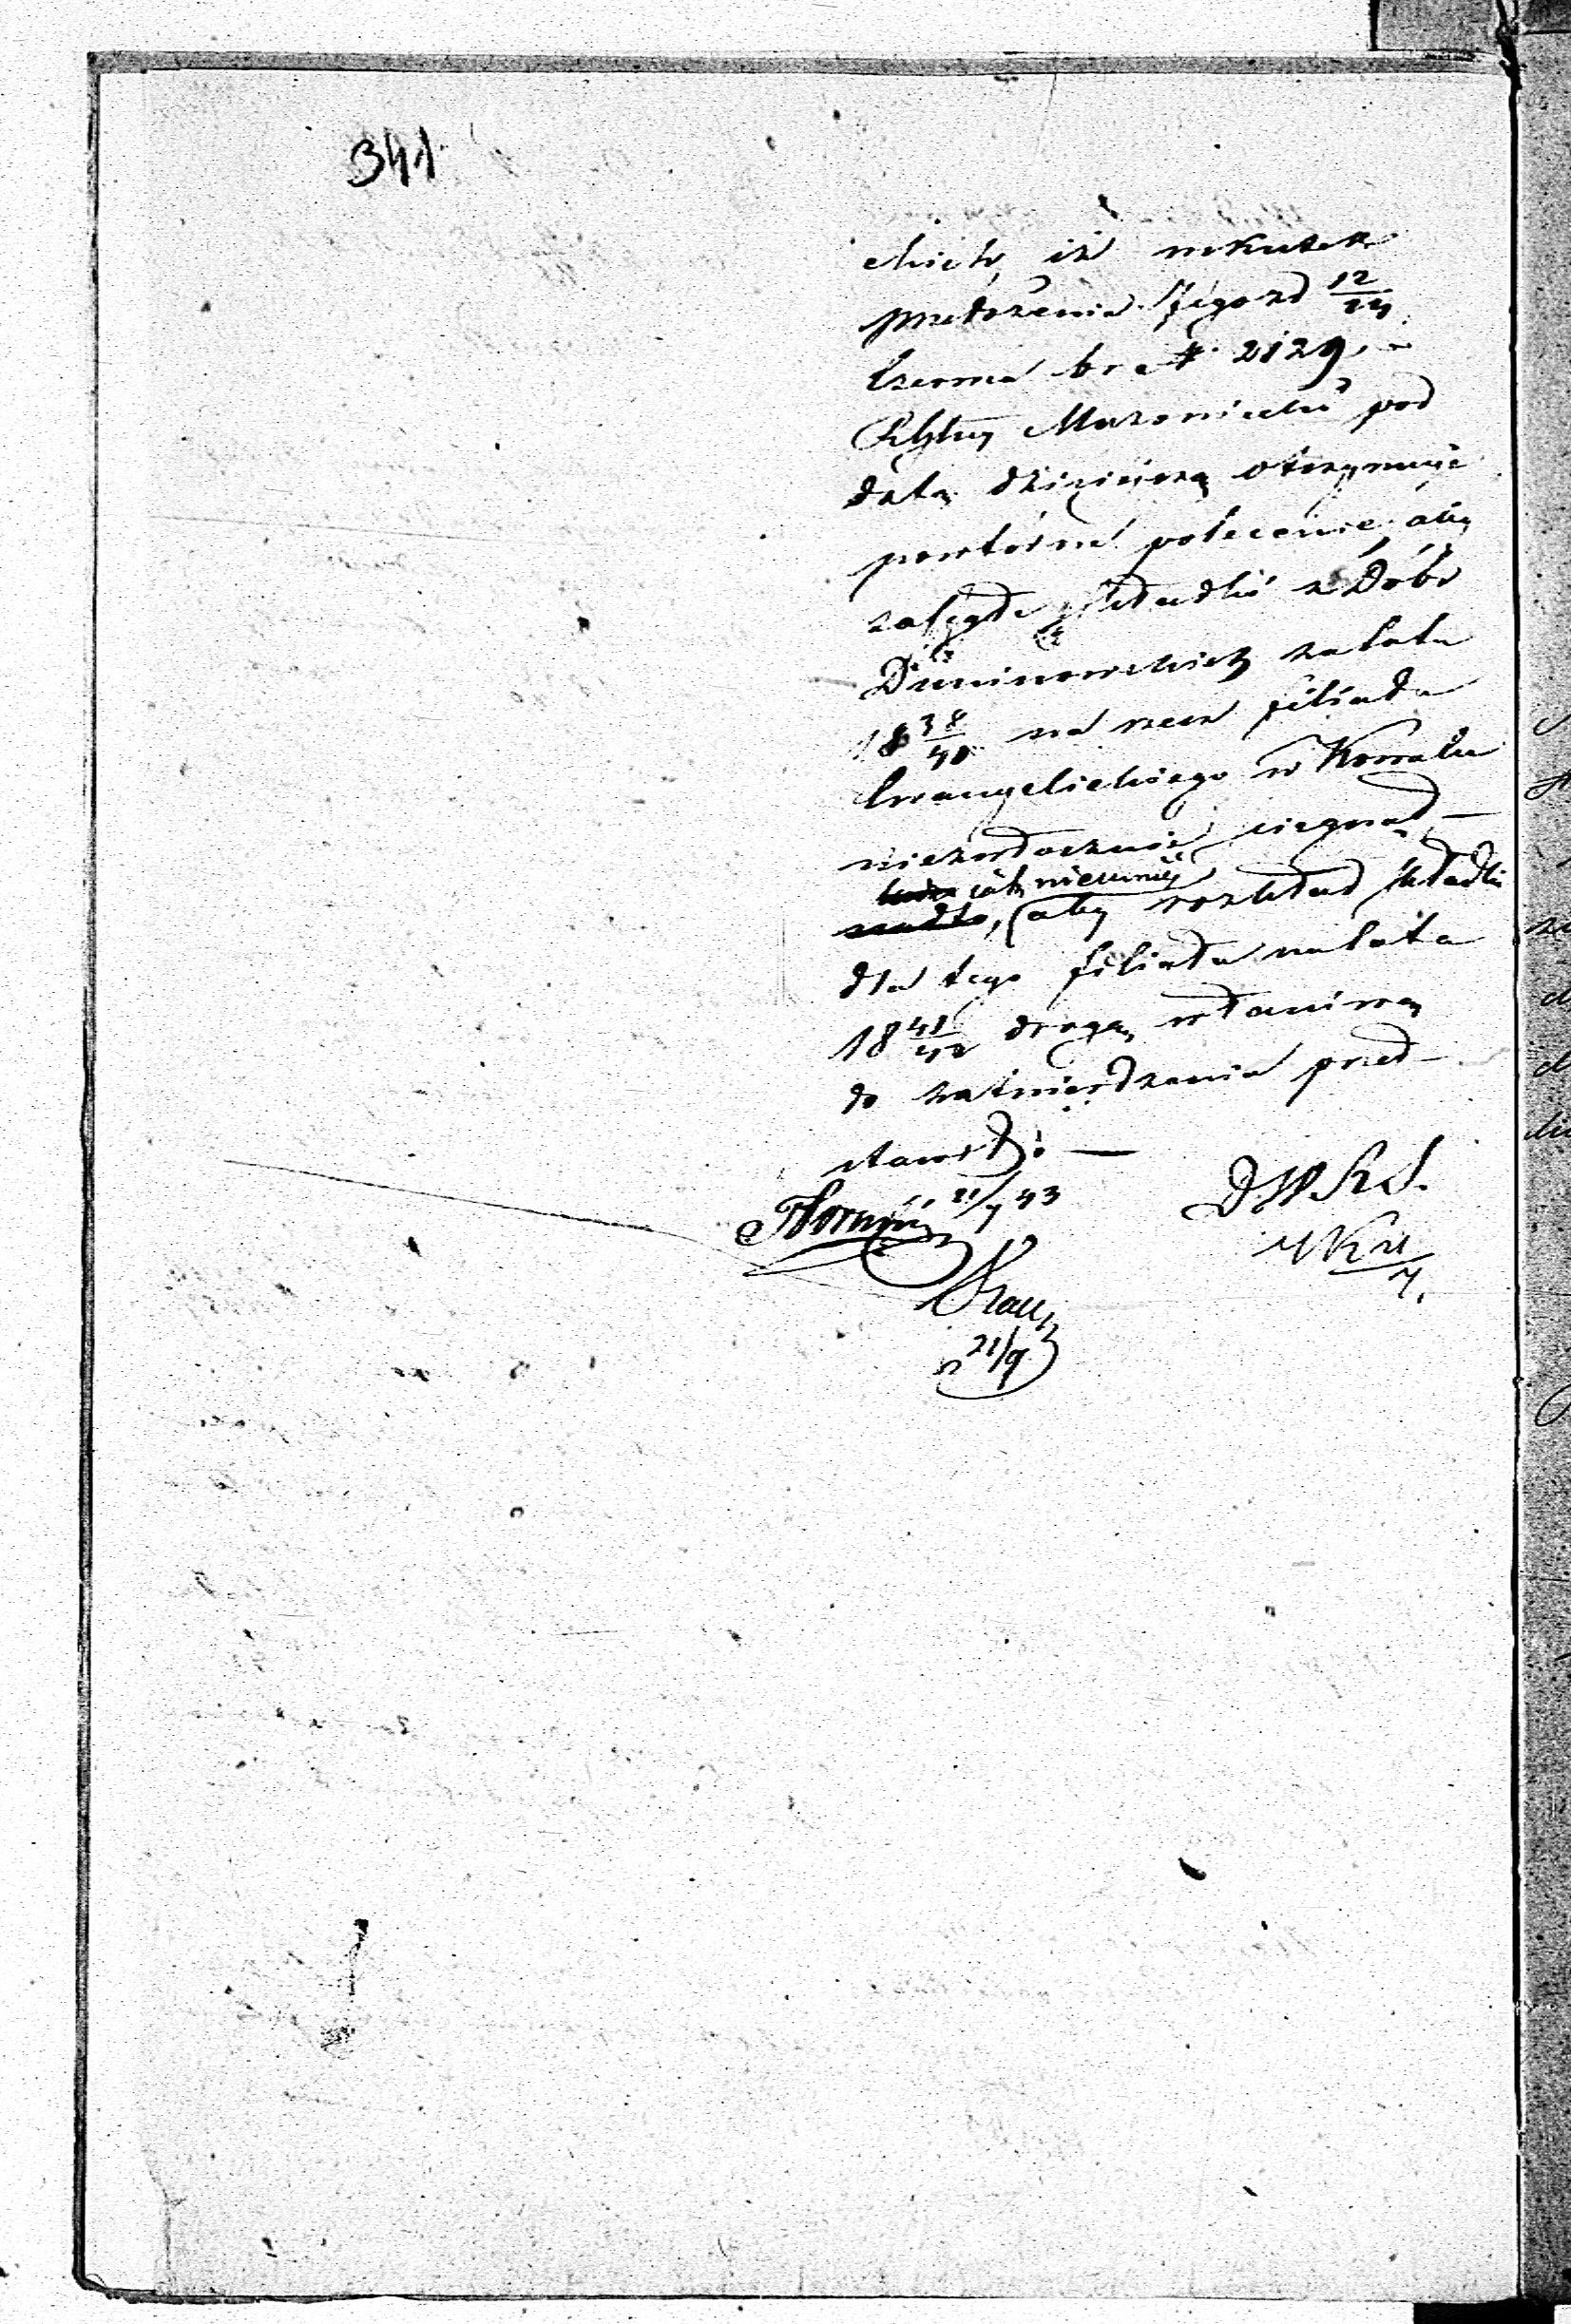 341
skich, iż w skutek
przedożenia Jego z d 12/24
Czerwca b r # 2129,
Rząd Mazowiecki pod
datą dzisieiszą otrzymuje
powtórne polecenie, aby
zaległe składki z Dóbr
Duninowskich za lata
18 38/40 na rzecz filiału
Ewangelickiego w Kowalu
niezwłocznie ściągnął –
jak niemniej
aby rozkład składki
dla tego filiału na lata
18 41/42 drogą właściwą
do zatwierdzenia przed-
stawił. —
21/7 43
D.W.R.S.
21/7.
21/9